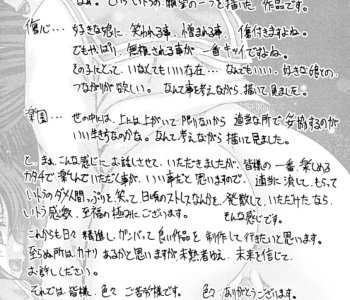 なあ。ひらいトうの願望の一つを描いた、作品です。
傷心… 好きな娘に、笑われる事、憎まれる事、傷付きますよね。
でもやはり、無視される事が一番キツイですね。
その子にとって、いなくてもいい存在… なんでもいい、好きな娘との、
つながりが欲しい。なんて事考えながら、描いて見ました。
楽園… 世の中には、上には上がいて、限りないから 適当な所で妥協するのが
いい生き方なのかな。なんて考えながら 描いて見ました。
て、まぁ、こんな感じに お話しさせて、いただきましたが、皆様の一番、楽しめる
カタチで楽しんでいただく事が、いい事だと 思いますので、適当に 流して、もらって
いトうのダメ人間、ぶりを 笑って 日頃のストレスなんかを、発散して、いただけたなら、
いトう感激、至福の極みにございます。 そんな感じです。
これからも日々精進し、ガンバって良い作品を制作して行きたいと思います。
至らぬ所は、カナリあるかと思いますが未熟者ゆえ、未来を信じて、
お許しください。
それでは皆様、色々 ご苦労様です。 色々、ありがとうございます。